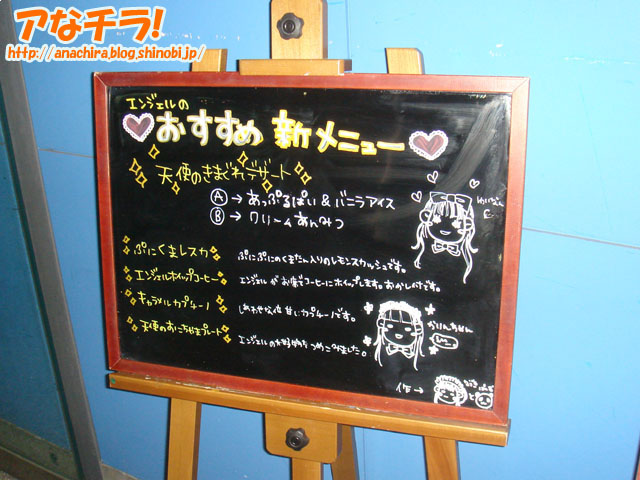 アなチラ!
http://anachira.blog.shinobi.jp/
エンジェルの
おすすめ 新メニュー
天使のきまぐれデザート
Ⓐ→ あっぷるぱい & バニラアイス
Ⓑ→ クリームあんみつ
ぷにくまレスカ ぷにぷにのくまたん入りのレモンスカッシュです。
エンジェルホイップコーヒー エンジェルがお席でコーヒーにホイップします。
キャラメルカプチーノ しあわせな位甘いカプチーノです。
天使のおにちゃまプレート エンジェルのお好物をつめこみました。
作→